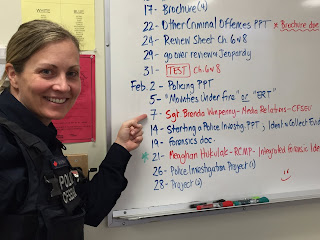 17- Brochure (4)
22- Other Criminal Offences PPT * Brochure due
24- Review Sheet Ch. 6+8
29- go over review + Jeopardy
31- TEST Ch. 6+8
Feb. 2- Policing PPT
5- "Mounties Under fire" or "ERT"
7- Sgt. Brenda Winpenny - Media Relations - CFSEU
14- Starting a Police Investig. PPT, Ident + Collect Evide
19- Forensics doc.
* 21- Meaghan - RCMP - Integrated Forensic Ide
26- Police Investigation Project (1)
28- Project (2)
POLICE
CFSEU